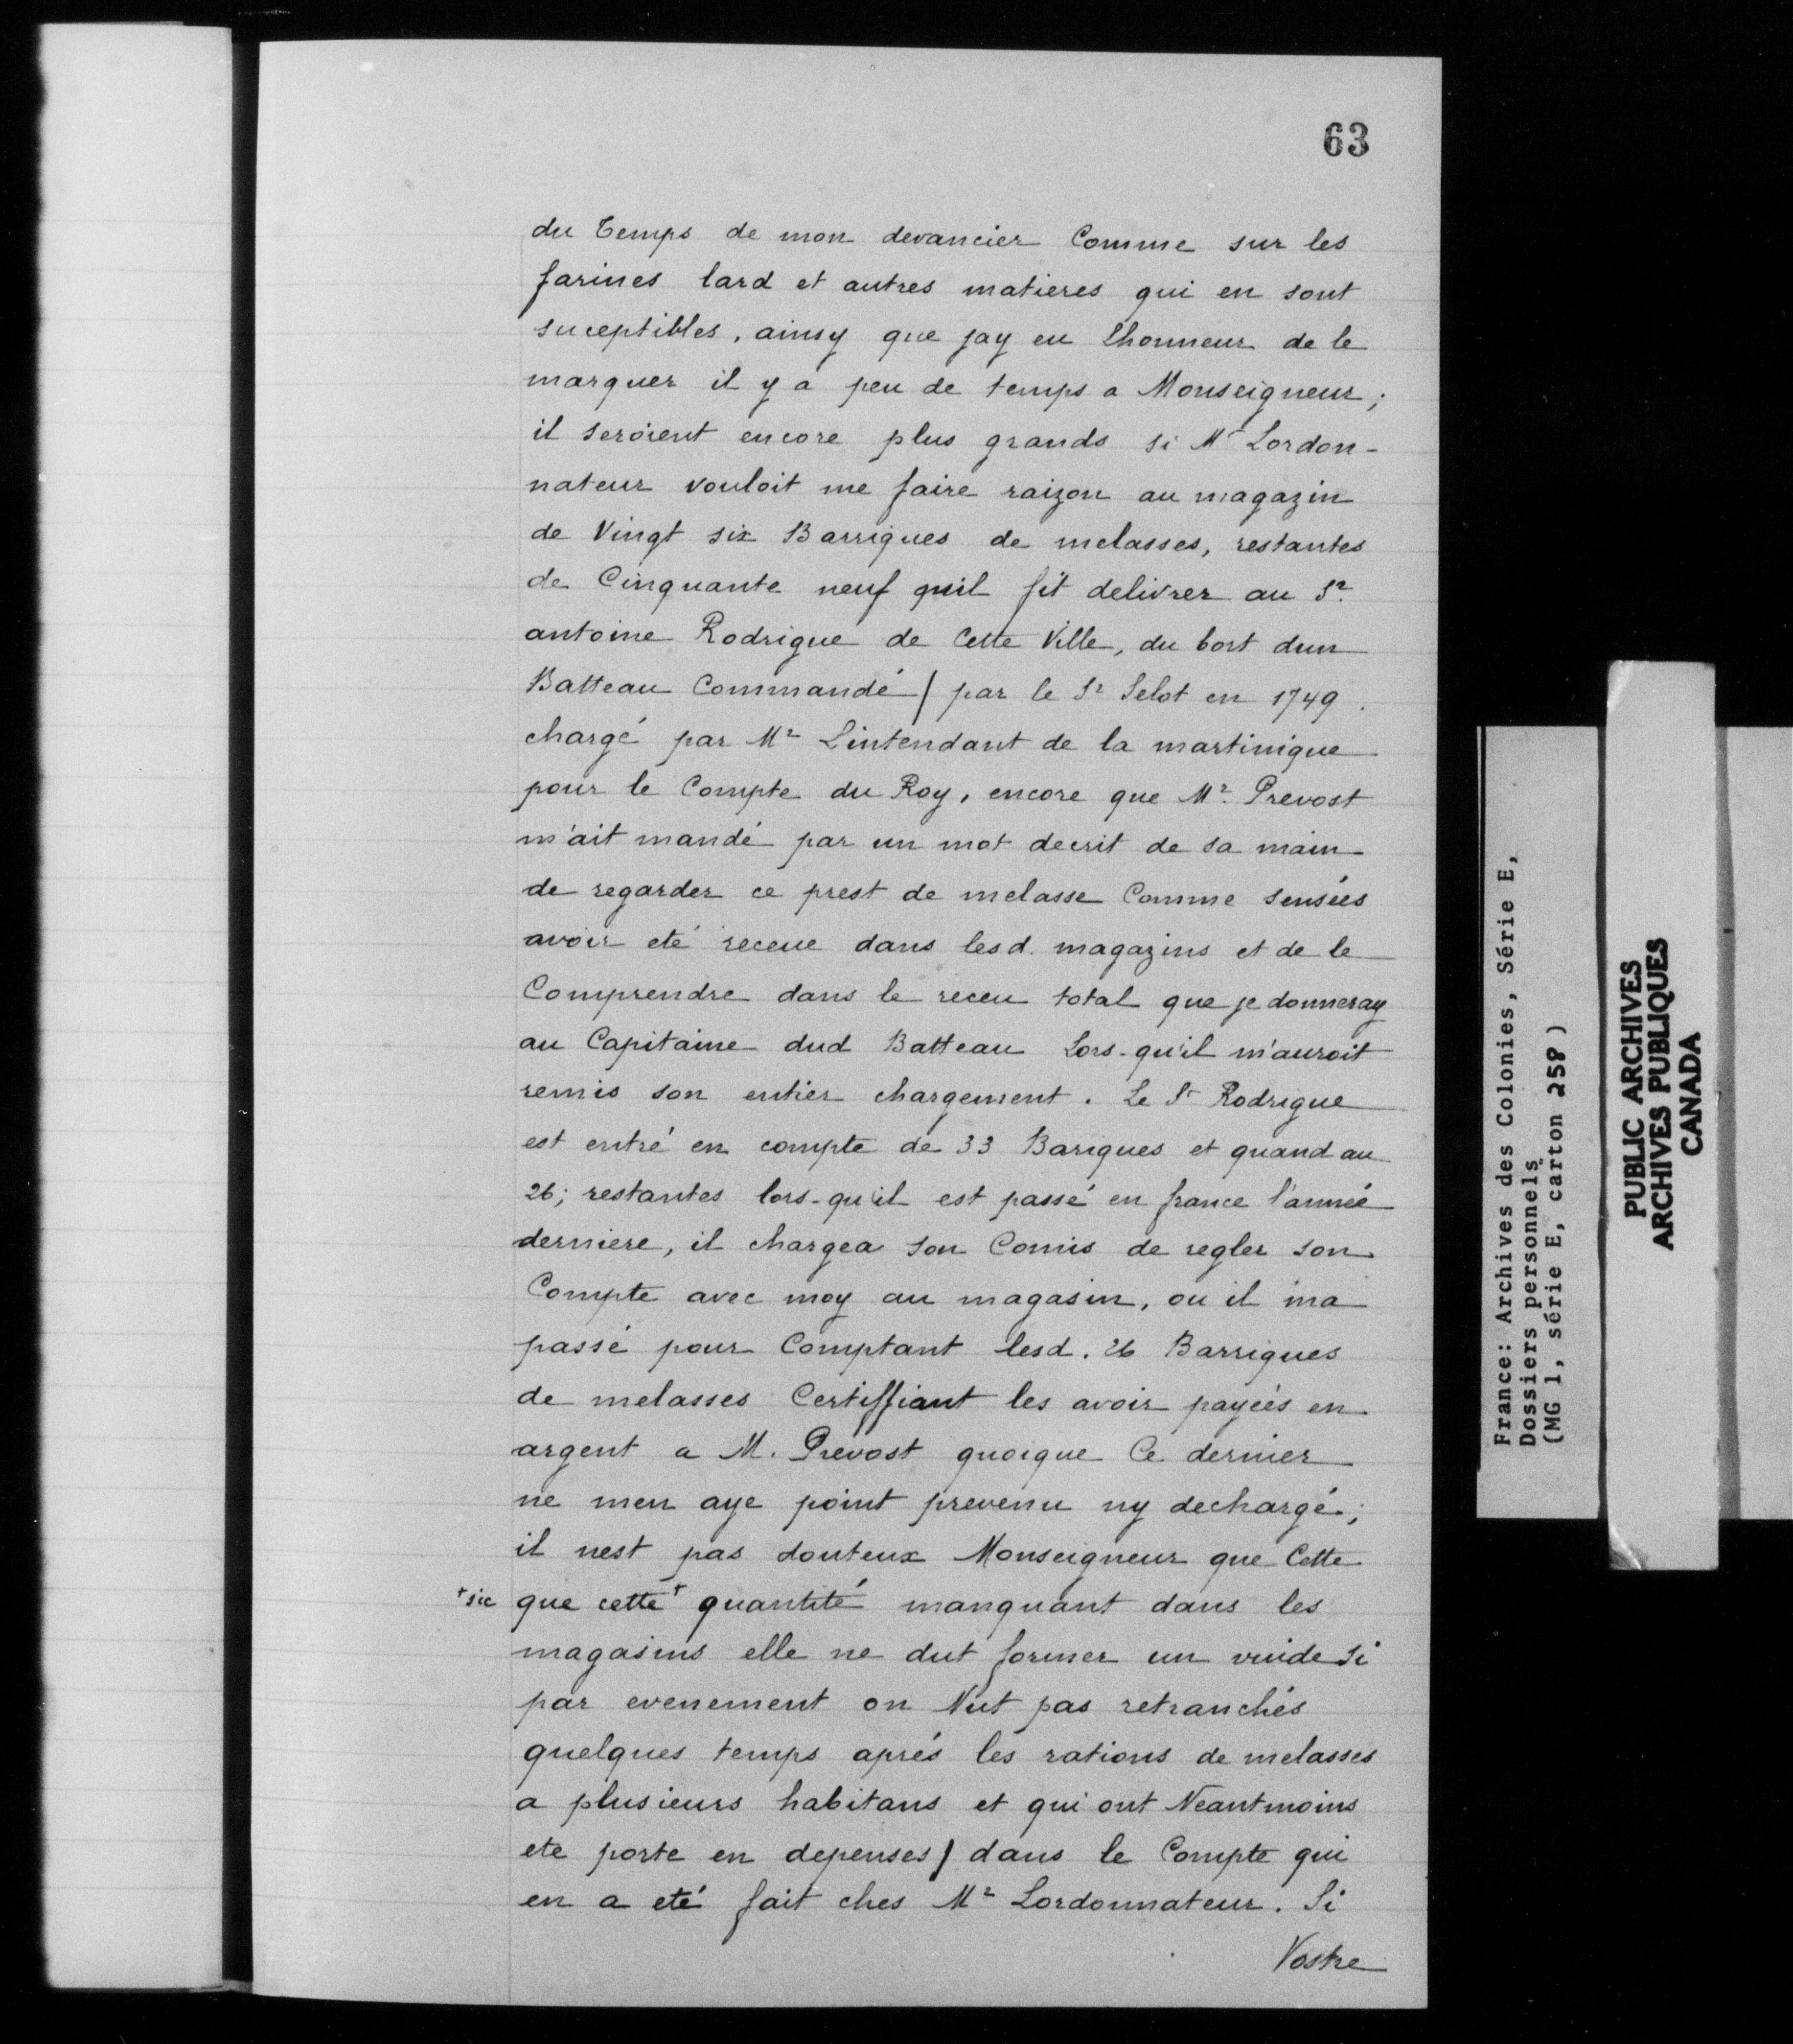 63
du Temps de mon devancier Comme sur les
farines lard et autres matieres qui en sont
suceptibles, ainsy que jay eu Lhonneur de le
marquer il y a peu de temps a Monseigneur;
il seroient encore plus grands si Mr Lordon-
nateur vouloit me faire raizon au magazin
de Vingt six Barriques de melasses, restantes
de Cinquante neuf quil fit delivrer au Sr.
antoine Rodrigue de Cette Ville, du bort dun
Batteau Commandé / par le Sr Selot en 1749.
chargé par Mr Lintendant de la martinique
pour le Compte du Roy, encore que Mr. Prevost
m'ait mandé par un mot decrit de sa main
de regarder ce prest de melasse Comme sensées
avoir eté receue dans lesd. magazins et de le
Comprendre dans le receu total que je donneray
au Capitaine dud Batteau Lors-qu'il m'auroit
remis son entier chargement. Le Sr Rodrigue
est entré en compte de 33 Bariques et quand au
26; restantes lors-qu'il est passé en france l'année
derniere, il chargea son Comis de regler son
Compte avec moy au magasin, ou il ma
passé pour Comptant lesd. 26 Barriques
de melasses Certiffiant les avoir payées en
argent a M. Prevost quoique Ce dernier
ne men aye point prevenu ny dechargé;
il nest pas douteux Monseigneur que Cette
+sic que cette+ quantité manquant dans les
magasins elle ne dut former un vuide si
par evenement on Nut pas retranchés
quelques temps aprés les rations de melasses
a plusieurs habitans et qui ont Neantmoins
ete porte en depenses / dans le Compte qui
en a eté fait ches Mr Lordonnateur. Si
Vostre
France: Archives des Colonies, Série E,
Dossiers personnels
(MG 1, série E, carton 258)
PUBLIC ARCHIVES
ARCHIVES PUBLIQUES
CANADA